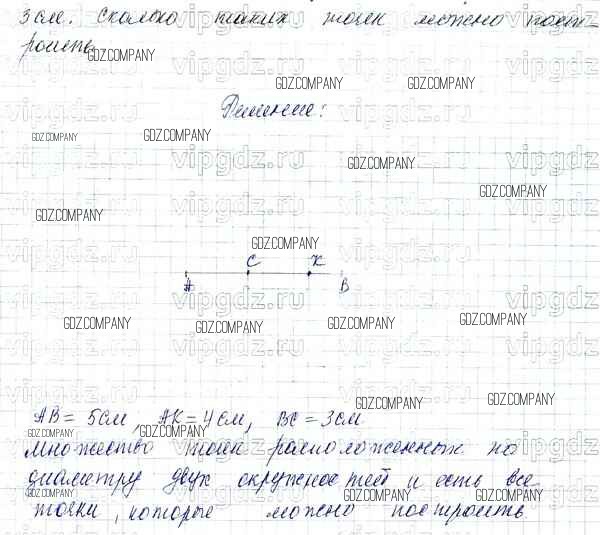 3 см. Сколько таких точек можно пост-
роить.
Решение:
C K
A B
AB = 5 см, AK = 4 см, BC = 3 см
Множество точек расположенных по
диаметру двух окружностей и есть все
точки, которые можно построить
GDZ.COMPANY
vipgdz.ru